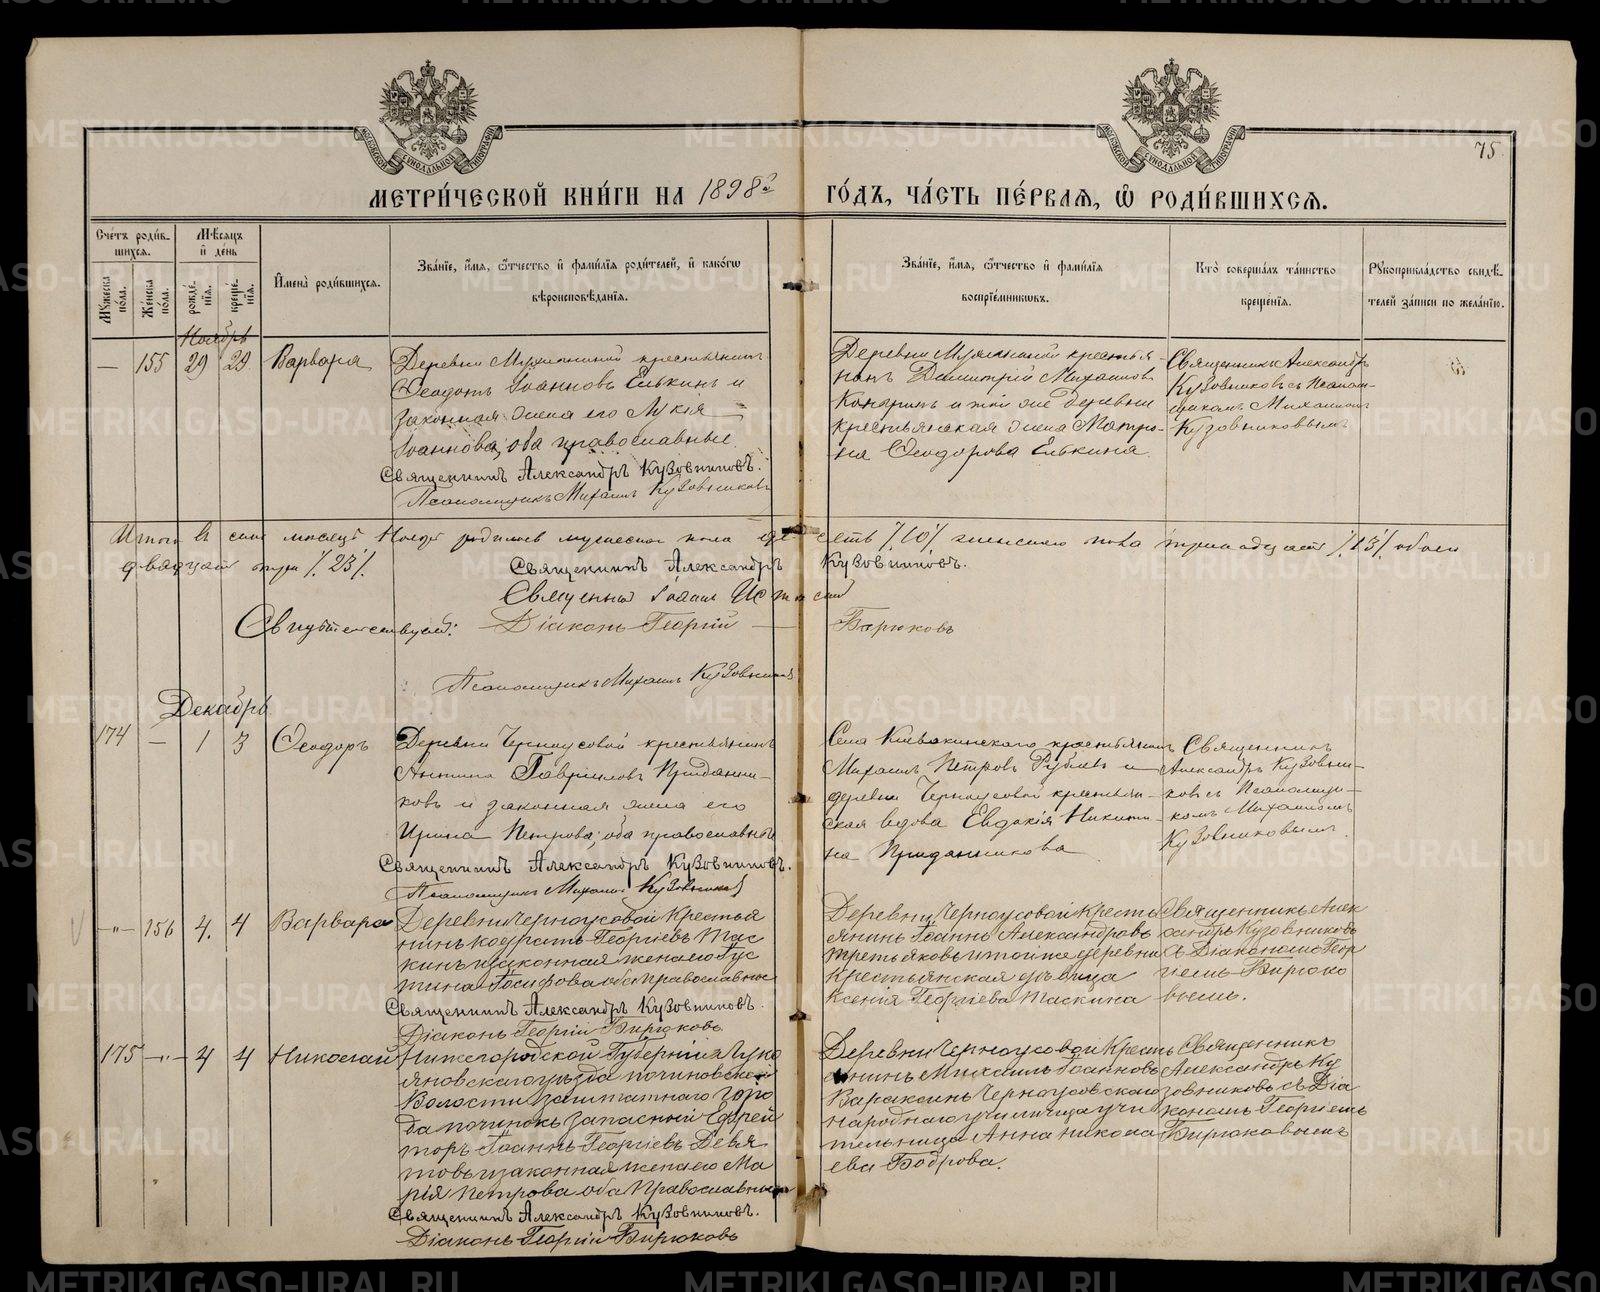 МОСКОВСКОЙ СѴНОДАЛЬНОЙ ТИПОГРАФІИ
МОСКОВСКОЙ СѴНОДАЛЬНОЙ ТИПОГРАФІИ
75
МЕТРИ́ЧЕСКОЙ КНИ́ГИ НА 1898й ГО́ДЪ, ЧА́СТЬ ПЕ́РВАЯ, Ѿ РОДИ́ВШИХСЯ.
Сче́тъ роди́в-
шихся.
Мѣ́сяцъ
и҆ де́нь
И҆мена̀ роди́вшихся.
Зва́нїе, и҆́мя, ѻ҆́тчество и҆ фами́лїя роди́телей, и҆ како́гѡ
вѣроисповѣ́данїя.
Зва́нїе, и҆́мя, ѻ҆́тчество и҆ фами́лїя
воспрїе́мникѡвъ.
Кто̀ соверша́лъ та́инство
креще́нїя.
Рꙋкоприкла́дство свидѣ́-
телей за́писи по жела́нїю.
Мꙋ́жеска по́ла.
Же́нска по́ла.
рожде́нїя.
креще́нїя.
Ноябрь
— 155 29 29 Варвара
Деревни Мурзинской крестьянинъ
Ѳеодотъ Іоанновъ Елькинъ и
законная жена его Лукія
Іоаннова, оба православные.
Священникъ Александръ Кузовниковъ.
Псаломщикъ Михаилъ Кузовниковъ
крестья-
нинъ Димитрій Михаиловъ
и той же деревни
крестьянская жена Матро-
на Ѳеодорова Елькина.
Священникъ Александръ
Кузовниковъ съ Псалом-
щикомъ Михаиломъ
Кузовниковымъ
Итого въ семъ мѣсяцѣ Ноябрѣ родилось мужеска пола десять /10/ женскаго пола тринадцать /13/ обоего
двадцать три /23/.
Священникъ Александръ Кузовниковъ.
Священникъ Іоаннъ
Свидѣтельствуетъ: Діаконъ Георгій — Бирюковъ
Псаломщикъ Михаилъ Кузовниковъ
Декабрь
174 — 1 3 Ѳеодоръ
Деревни Черноусовой крестьянинъ
Гавріиловъ Приданни-
ковъ и законная жена его
Ирина Петрова, оба православные
Священникъ Александръ Кузовниковъ.
Псаломщикъ Михаилъ Кузовниковъ
Села крестьянинъ
Михаилъ Петровъ и
деревни Черноусовой крестьян-
ская вдова Евдокія Никити-
на Приданникова
Священникъ
Александръ Кузовни-
ковъ съ Псаломщи-
комъ Михаиломъ
Кузовниковымъ.
—"— 156 4. 4 Варвара
Деревни Черноусовой Крестья
нинъ Кодратъ Георгіевъ Тас
кинъ и законная жена его Іус
тина Іосифова оба Православные
Священникъ Александръ Кузовниковъ.
Діаконъ Георгій Бирюковъ
Деревни Черноусовой Кресть
янинъ Іоаннъ Александровъ
Третьяковъ и той же деревни
Крестьянская дѣвица
Ксенія Георгіева Таскина
Священникъ Алек
сандръ Кузовниковъ
съ Діакономъ Геор
гіемъ Бирюко
вымъ.
175 —"— 4 4 Николай
Нижегородской Губерніи Луко
яновскаго уѣзда Починковской
Волости, заштатнаго горо
да Починокъ запасной Ефрей
торъ Іоаннъ Георгіевъ Девя
товъ и законная жена его Ма
рія Петрова оба Православные
Священникъ Александръ Кузовниковъ.
Діаконъ Георгій Бирюковъ
Деревни Черноусовой Кресть
янинъ Михаилъ Іоанновъ
Вараксинъ Черноусовскаго
народнаго училища учи
тельница Анна Никола
ева Боброва.
Священникъ
Александръ Ку
зовниковъ съ Діа
кономъ Георгіемъ
Бирюковымъ
METRIKI.GASO-URAL.RU